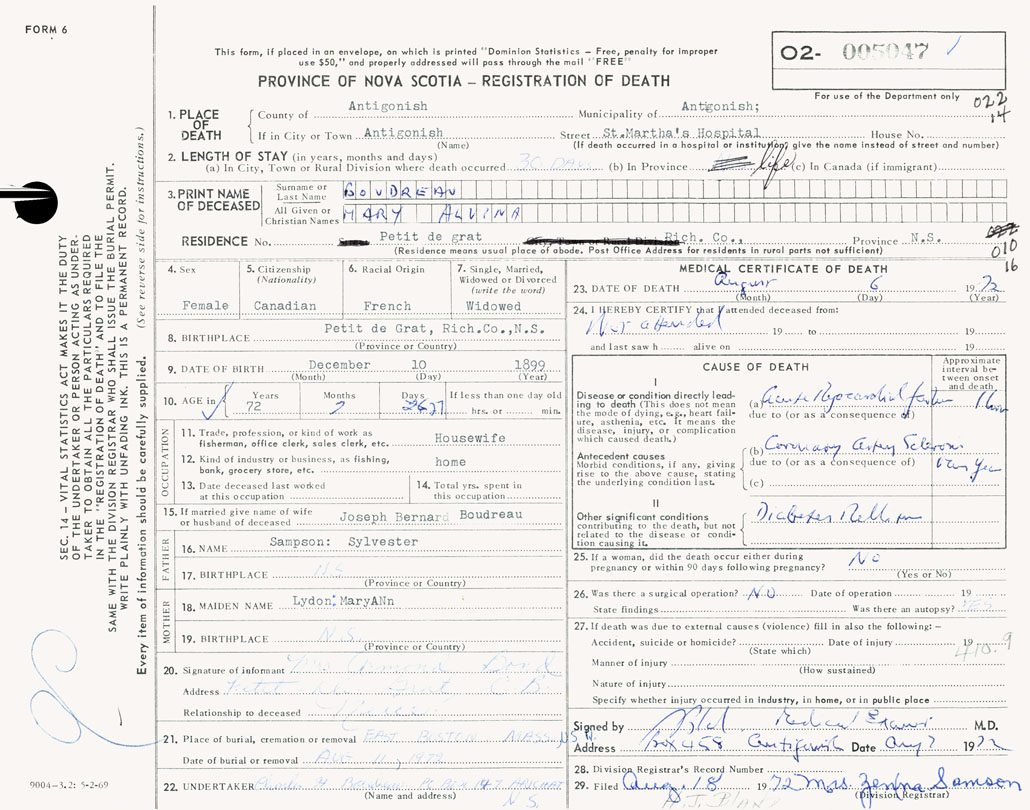 FORM 6
This form, if placed in an envelope, on which is printed "Dominion Statistics – Free, penalty for improper
use $50," and properly addressed will pass through the mail "FREE"
PROVINCE OF NOVA SCOTIA – REGISTRATION OF DEATH
02- 005047
For use of the Department only
022
14
1. PLACE OF DEATH
County of Antigonish Municipality of Antgonish;
If in City or Town Antigonish Street St.Martha's Hospital House No.
(Name) (If death occurred in a hospital or institution, give the name instead of street and number)
2. LENGTH OF STAY (in years, months and days)
(a) In City, Town or Rural Division where death occurred 30 DAYS (b) In Province life (c) In Canada (if immigrant)
3. PRINT NAME OF DECEASED
Surname or Last Name BOUDREAU
All Given or Christian Names MARY ALVINA
RESIDENCE No. Petit de grat Rich. Co., Province N.S.
(Residence means usual place of abode. Post Office Address for residents in rural parts not sufficient)
010
16
4. Sex Female
5. Citizenship (Nationality) Canadian
6. Racial Origin French
7. Single, Married, Widowed or Divorced (write the word) Widowed
8. BIRTHPLACE Petit de Grat, Rich.Co.,N.S.
(Province or Country)
9. DATE OF BIRTH December 10 1899
(Month) (Day) (Year)
10. AGE in Years 72 Months 7 Days 27
If less than one day old
hrs. or min.
OCCUPATION
11. Trade, profession, or kind of work as fisherman, office clerk, sales clerk, etc. Housewife
12. Kind of industry or business, as fishing, bank, grocery store, etc. home
13. Date deceased last worked at this occupation
14. Total yrs. spent in this occupation
15. If married give name of wife or husband of deceased Joseph Bernard Boudreau
FATHER
16. NAME Sampson: Sylvester
17. BIRTHPLACE N.S
(Province or Country)
MOTHER
18. MAIDEN NAME Lydon: MaryANn
19. BIRTHPLACE N.S.
(Province or Country)
20. Signature of informant Mrs
Address Petit de Grat C.B.
Relationship to deceased
21. Place of burial, cremation or removal EAST BOSTON MASS. USA
Date of burial or removal AUG 11, 1972
22. UNDERTAKER
(Name and address)
N.S.
MEDICAL CERTIFICATE OF DEATH
23. DATE OF DEATH August 6 1972
(Month) (Day) (Year)
24. I HEREBY CERTIFY that I attended deceased from:
Not attended 19 to 19
and last saw h alive on 19
CAUSE OF DEATH
Approximate interval between onset and death
I
Disease or condition directly leading to death (This does not mean the mode of dying, e.g., heart failure, asthenia, etc. It means the disease, injury, or complication which caused death.)
(a) Acute Myocardial 1 hour
due to (or as a consequence of)
Antecedent causes
Morbid conditions, if any, giving rise to the above cause, stating the underlying condition last.
(b) Coronary Artery Sclerosis
due to (or as a consequence of)
(c)
II
Other significant conditions contributing to the death, but not related to the disease or condition causing it.
Diabetes Mellitus
25. If a woman, did the death occur either during pregnancy or within 90 days following pregnancy? NO
(Yes or No)
26. Was there a surgical operation? NO Date of operation 19
State findings Was there an autopsy? YES
27. If death was due to external causes (violence) fill in also the following: –
Accident, suicide or homicide? Date of injury 19
(State which)
410.9
Manner of injury
(How sustained)
Nature of injury
Specify whether injury occurred in industry, in home, or in public place
Signed by Medical Examiner M.D.
Address Box 458 Antigonish Date Aug 7 1972
28. Division Registrar's Record Number
29. Filed Aug. 18 1972 Mrs. Zenna Samson
(Division Registrar)
SEC. 14 – VITAL STATISTICS ACT MAKES IT THE DUTY
OF THE UNDERTAKER OR PERSON ACTING AS UNDER-
TAKER TO OBTAIN ALL THE PARTICULARS REQUIRED
IN THE "REGISTRATION OF DEATH" AND TO FILE THE
SAME WITH THE DIVISION REGISTRAR WHO SHALL ISSUE THE BURIAL PERMIT.
WRITE PLAINLY WITH UNFADING INK. THIS IS A PERMANENT RECORD.
Every item of information should be carefully supplied. (See reverse side for instructions.)
9004-3.2: 5-2-69